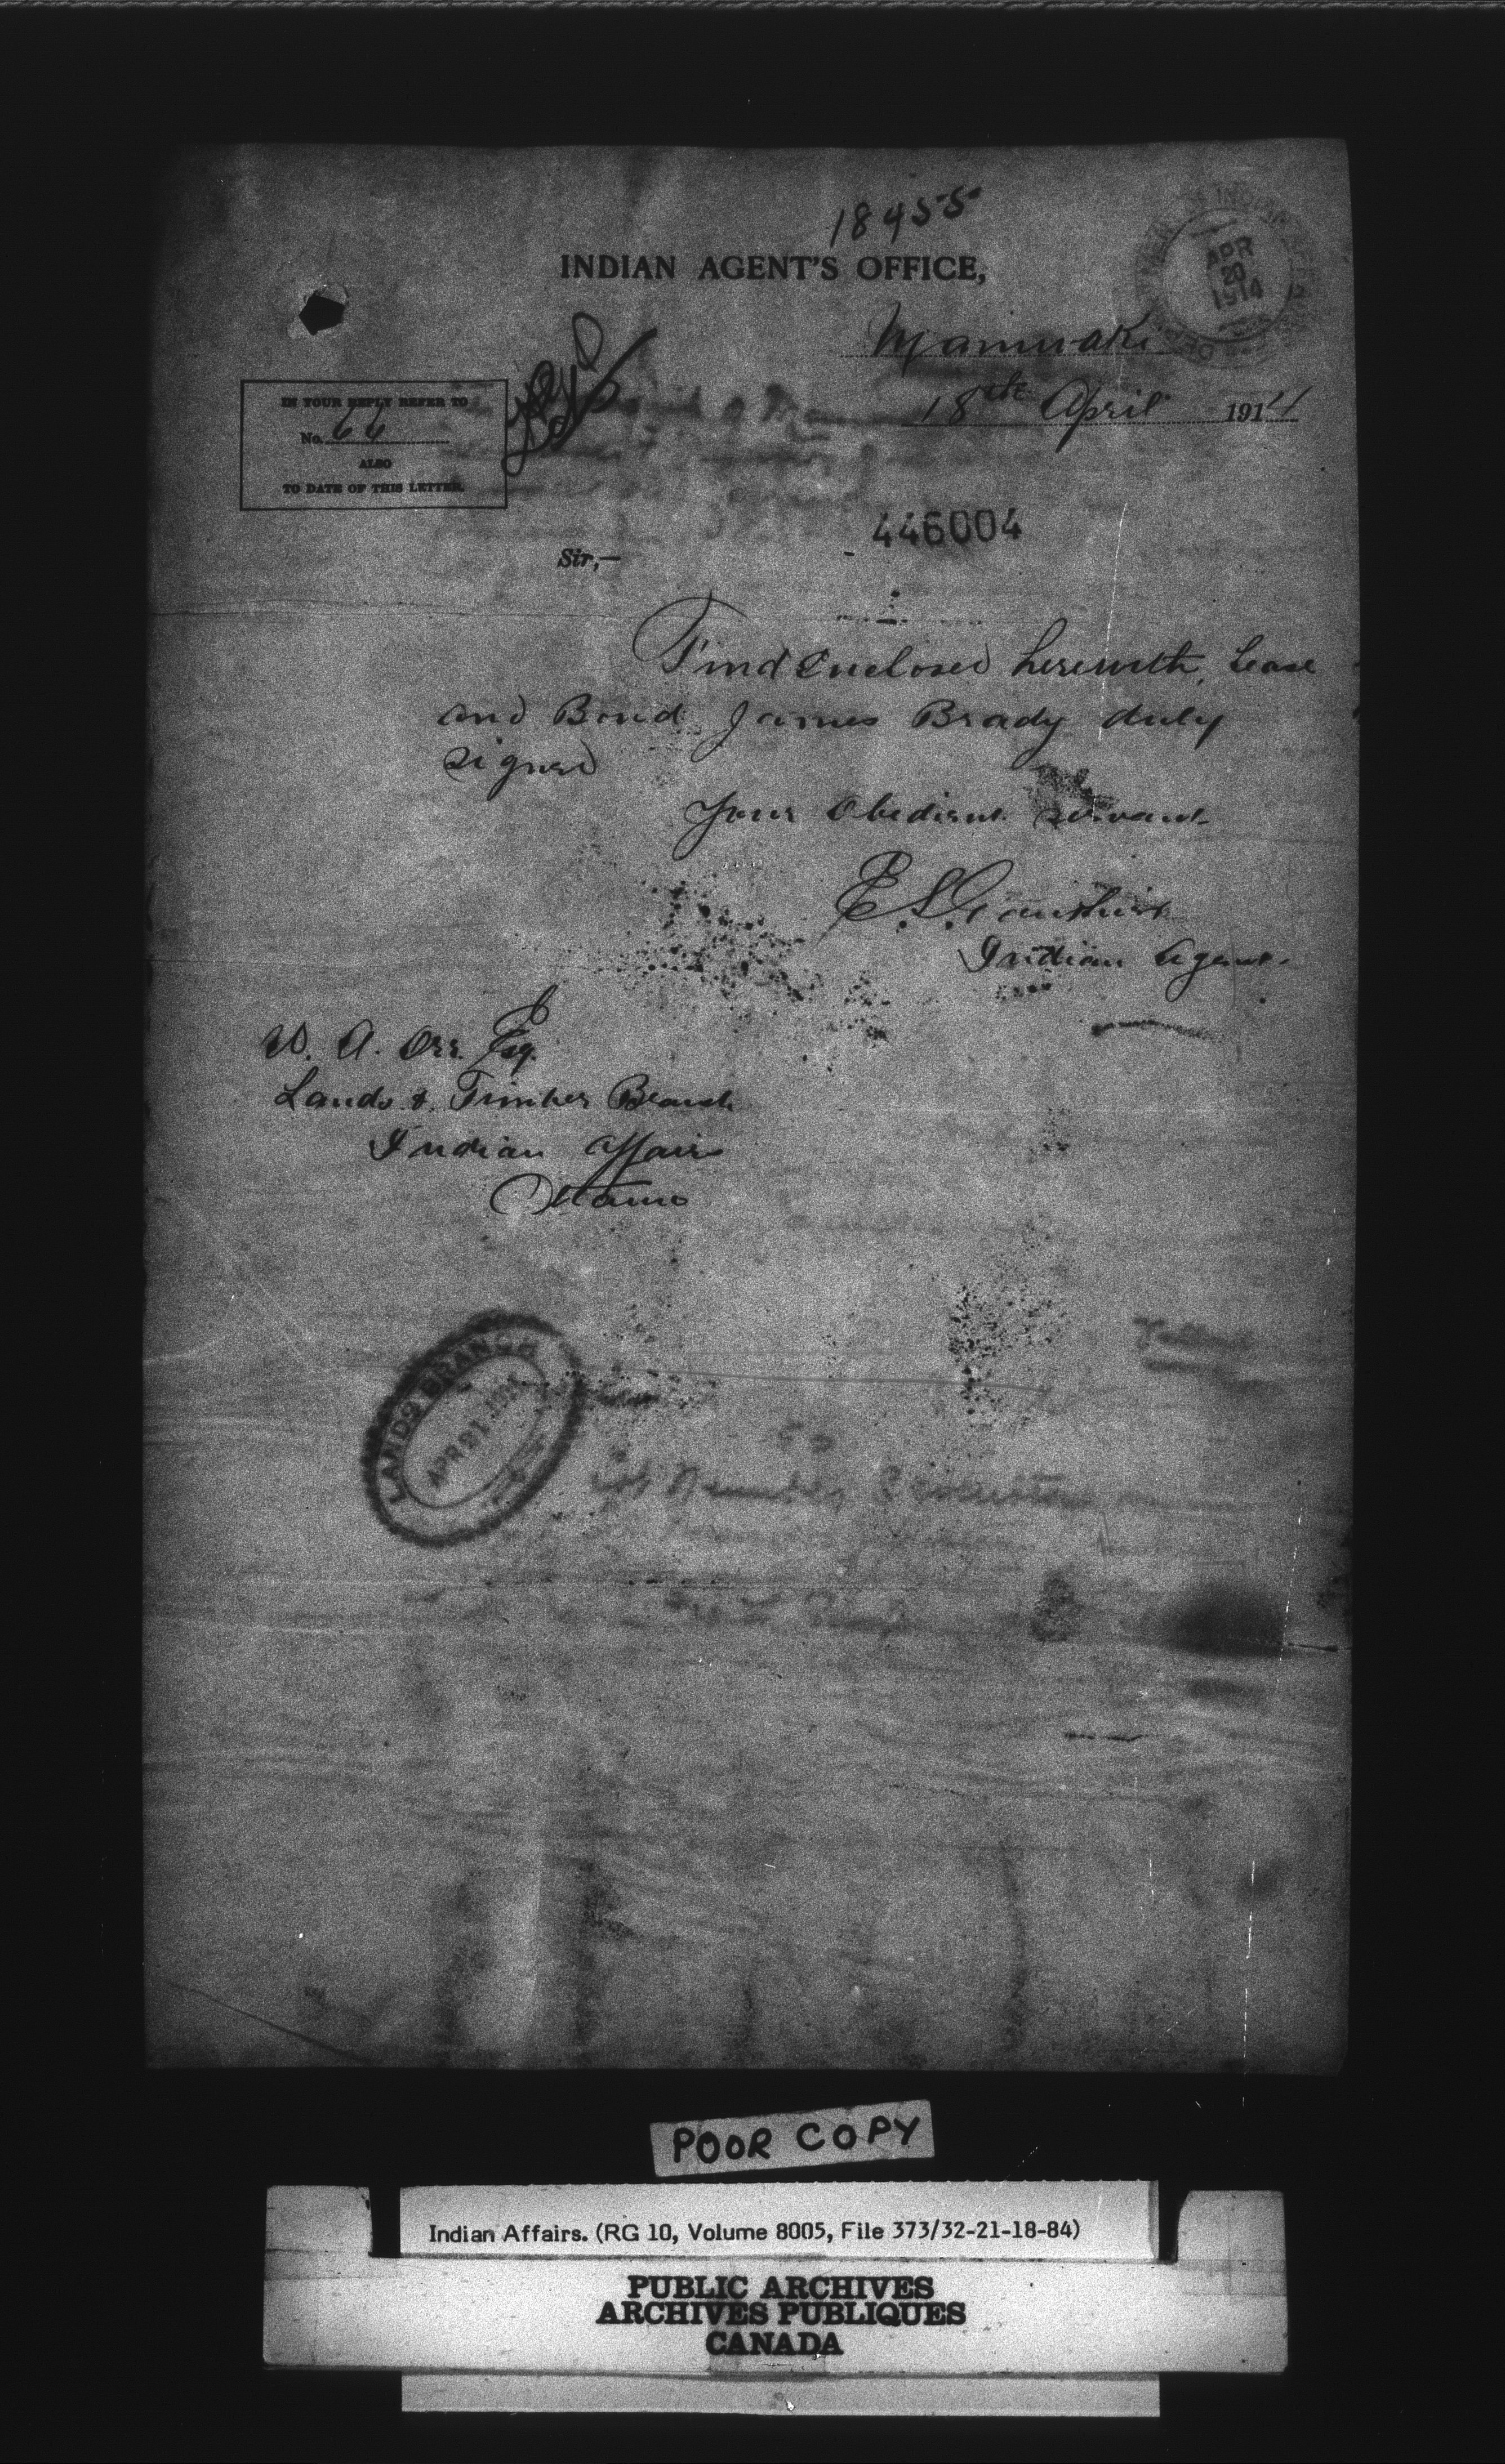 18455
INDIAN AGENT'S OFFICE,
APR
20
1914
Maniwaki
18th April 1914
IN YOUR REPLY REFER TO
No. 66
ALSO
TO DATE OF THIS LETTER.
446004
Sir,—
Find Enclosed herewith, Lease
and Bond James Brady duly
signed
Your Obedient Servant
E. S. Gauthier
Indian Agent.
W. A. Orr. Esq.
Lands & Timber Branch
Indian Affairs
Ottawa
LANDS BRANCH
APR 21 1914
POOR COPY
Indian Affairs. (RG 10, Volume 8005, File 373/32-21-18-84)
PUBLIC ARCHIVES
ARCHIVES PUBLIQUES
CANADA